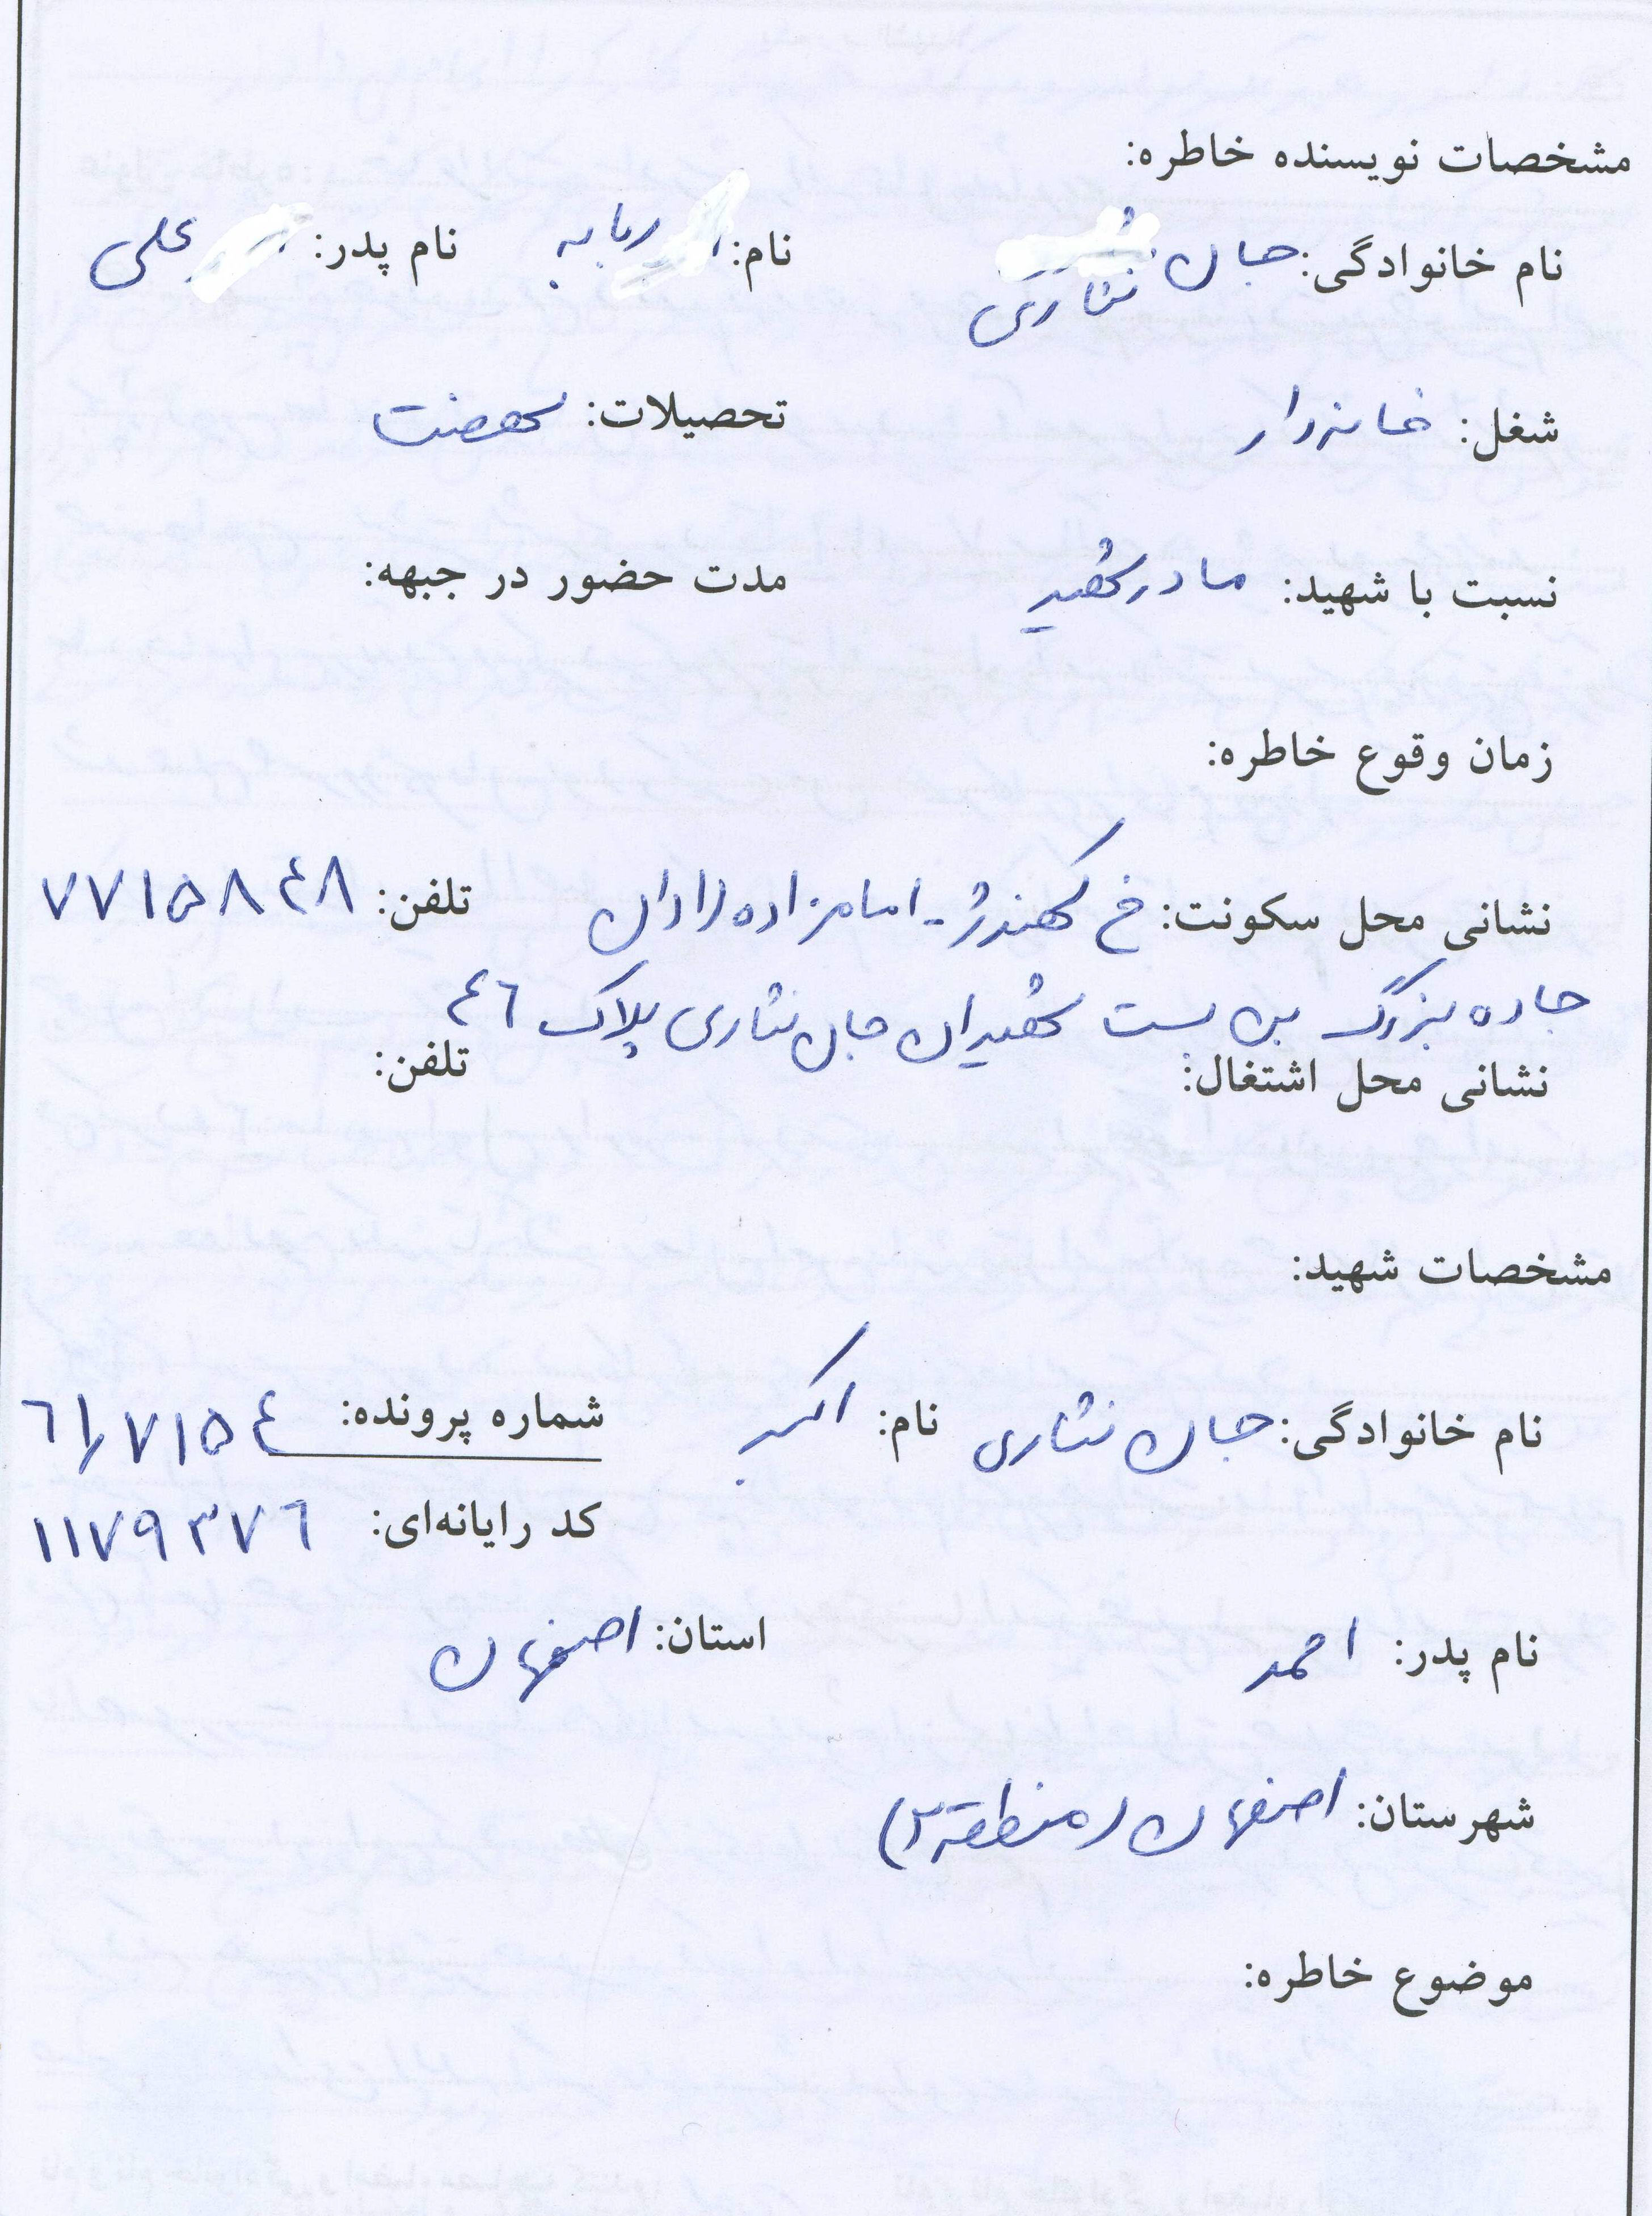 مشخصات نویسنده خاطره:
نام خانوادگی: جان نثاری نام: ربابه نام پدر: علی
شغل: خانه‌دار تحصیلات: نهضت
نسبت با شهید: مادر شهید مدت حضور در جبهه:
زمان وقوع خاطره:
نشانی محل سکونت: خ کهندژ - امامزاده زاداران تلفن: ۷۷۱۵۸۴۸
جاده بزرگ بن بست شهیدان جان نثاری پلاک ۴۶
نشانی محل اشتغال: تلفن:
مشخصات شهید:
نام خانوادگی: جان نثاری نام: اکبر شماره پرونده: ۶۱٫۷۱۵۴
کد رایانه‌ای: ۱۱۷۹۳۷۶
نام پدر: احمد استان: اصفهان
شهرستان: اصفهان (منطقه ۳)
موضوع خاطره: